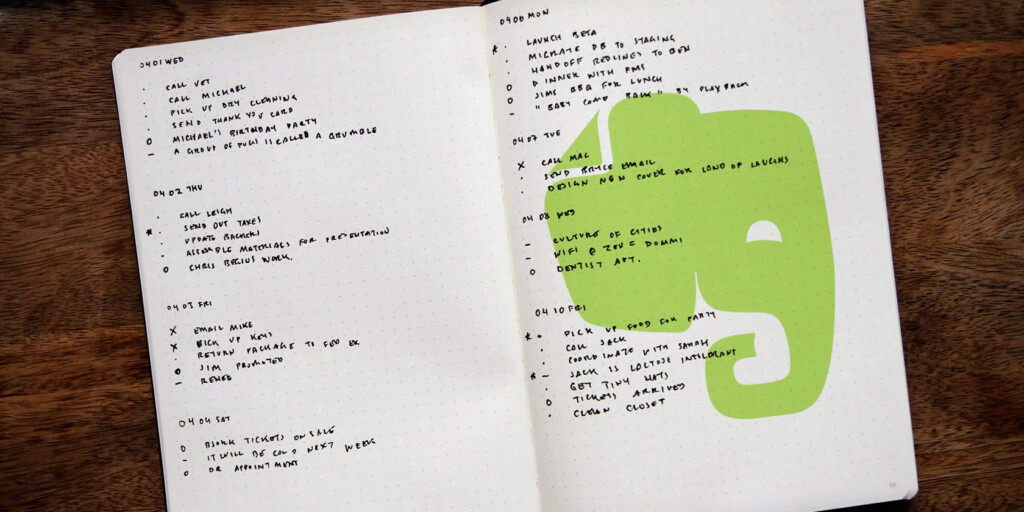 04 01 WED
. CALL VET
. CALL MICHAEL
. PICK UP DRY CLEANING
. SEND THANK YOU CARD
o MICHAEL'S BIRTHDAY PARTY
– A GROUP OF PUGS IS CALLED A GRUMBLE
04 02 THU
. CALL LEIGH
* . SEND OUT TAXES
. UPDATE BACKERS
. ASSEMBLE MATERIALS FOR PRESENTATION
o CHRIS BEGINS WORK.
04 03 FRI
X EMAIL MIKE
X PICK UP KEYS
. RETURN PACKAGE TO FED EX
o JIM PROMOTED
– RENEE
04 04 SAT
o BJORK TICKETS ON SALE
– IT WILL BE COLD NEXT WEEK
o DR APPOINTMENT
04 06 MON
* . LAUNCH BETA
. MIGRATE DB TO STAGING
. HANDOFF REDLINES TO BEN
o DINNER WITH
o JIMS BBQ FOR LUNCH
– "BABY COME BACK" BY PLAYBACK
04 07 TUE
X CALL MAC
. SEND BRYCE EMAIL
. DESIGN NEW COVER FOR LAND OF LAUGHS
04 08 WED
– CULTURE OF CITIES
– WIFI @
o DENTIST APT.
04 10 FRI
* . PICK UP FOOD FOR PARTY
. CALL JACK
. COORDINATE WITH SARAH
* – JACK IS LACTOSE INTOLERANT
. GET TINY HATS
o TICKETS ARRIVED
. CLEAN CLOSET